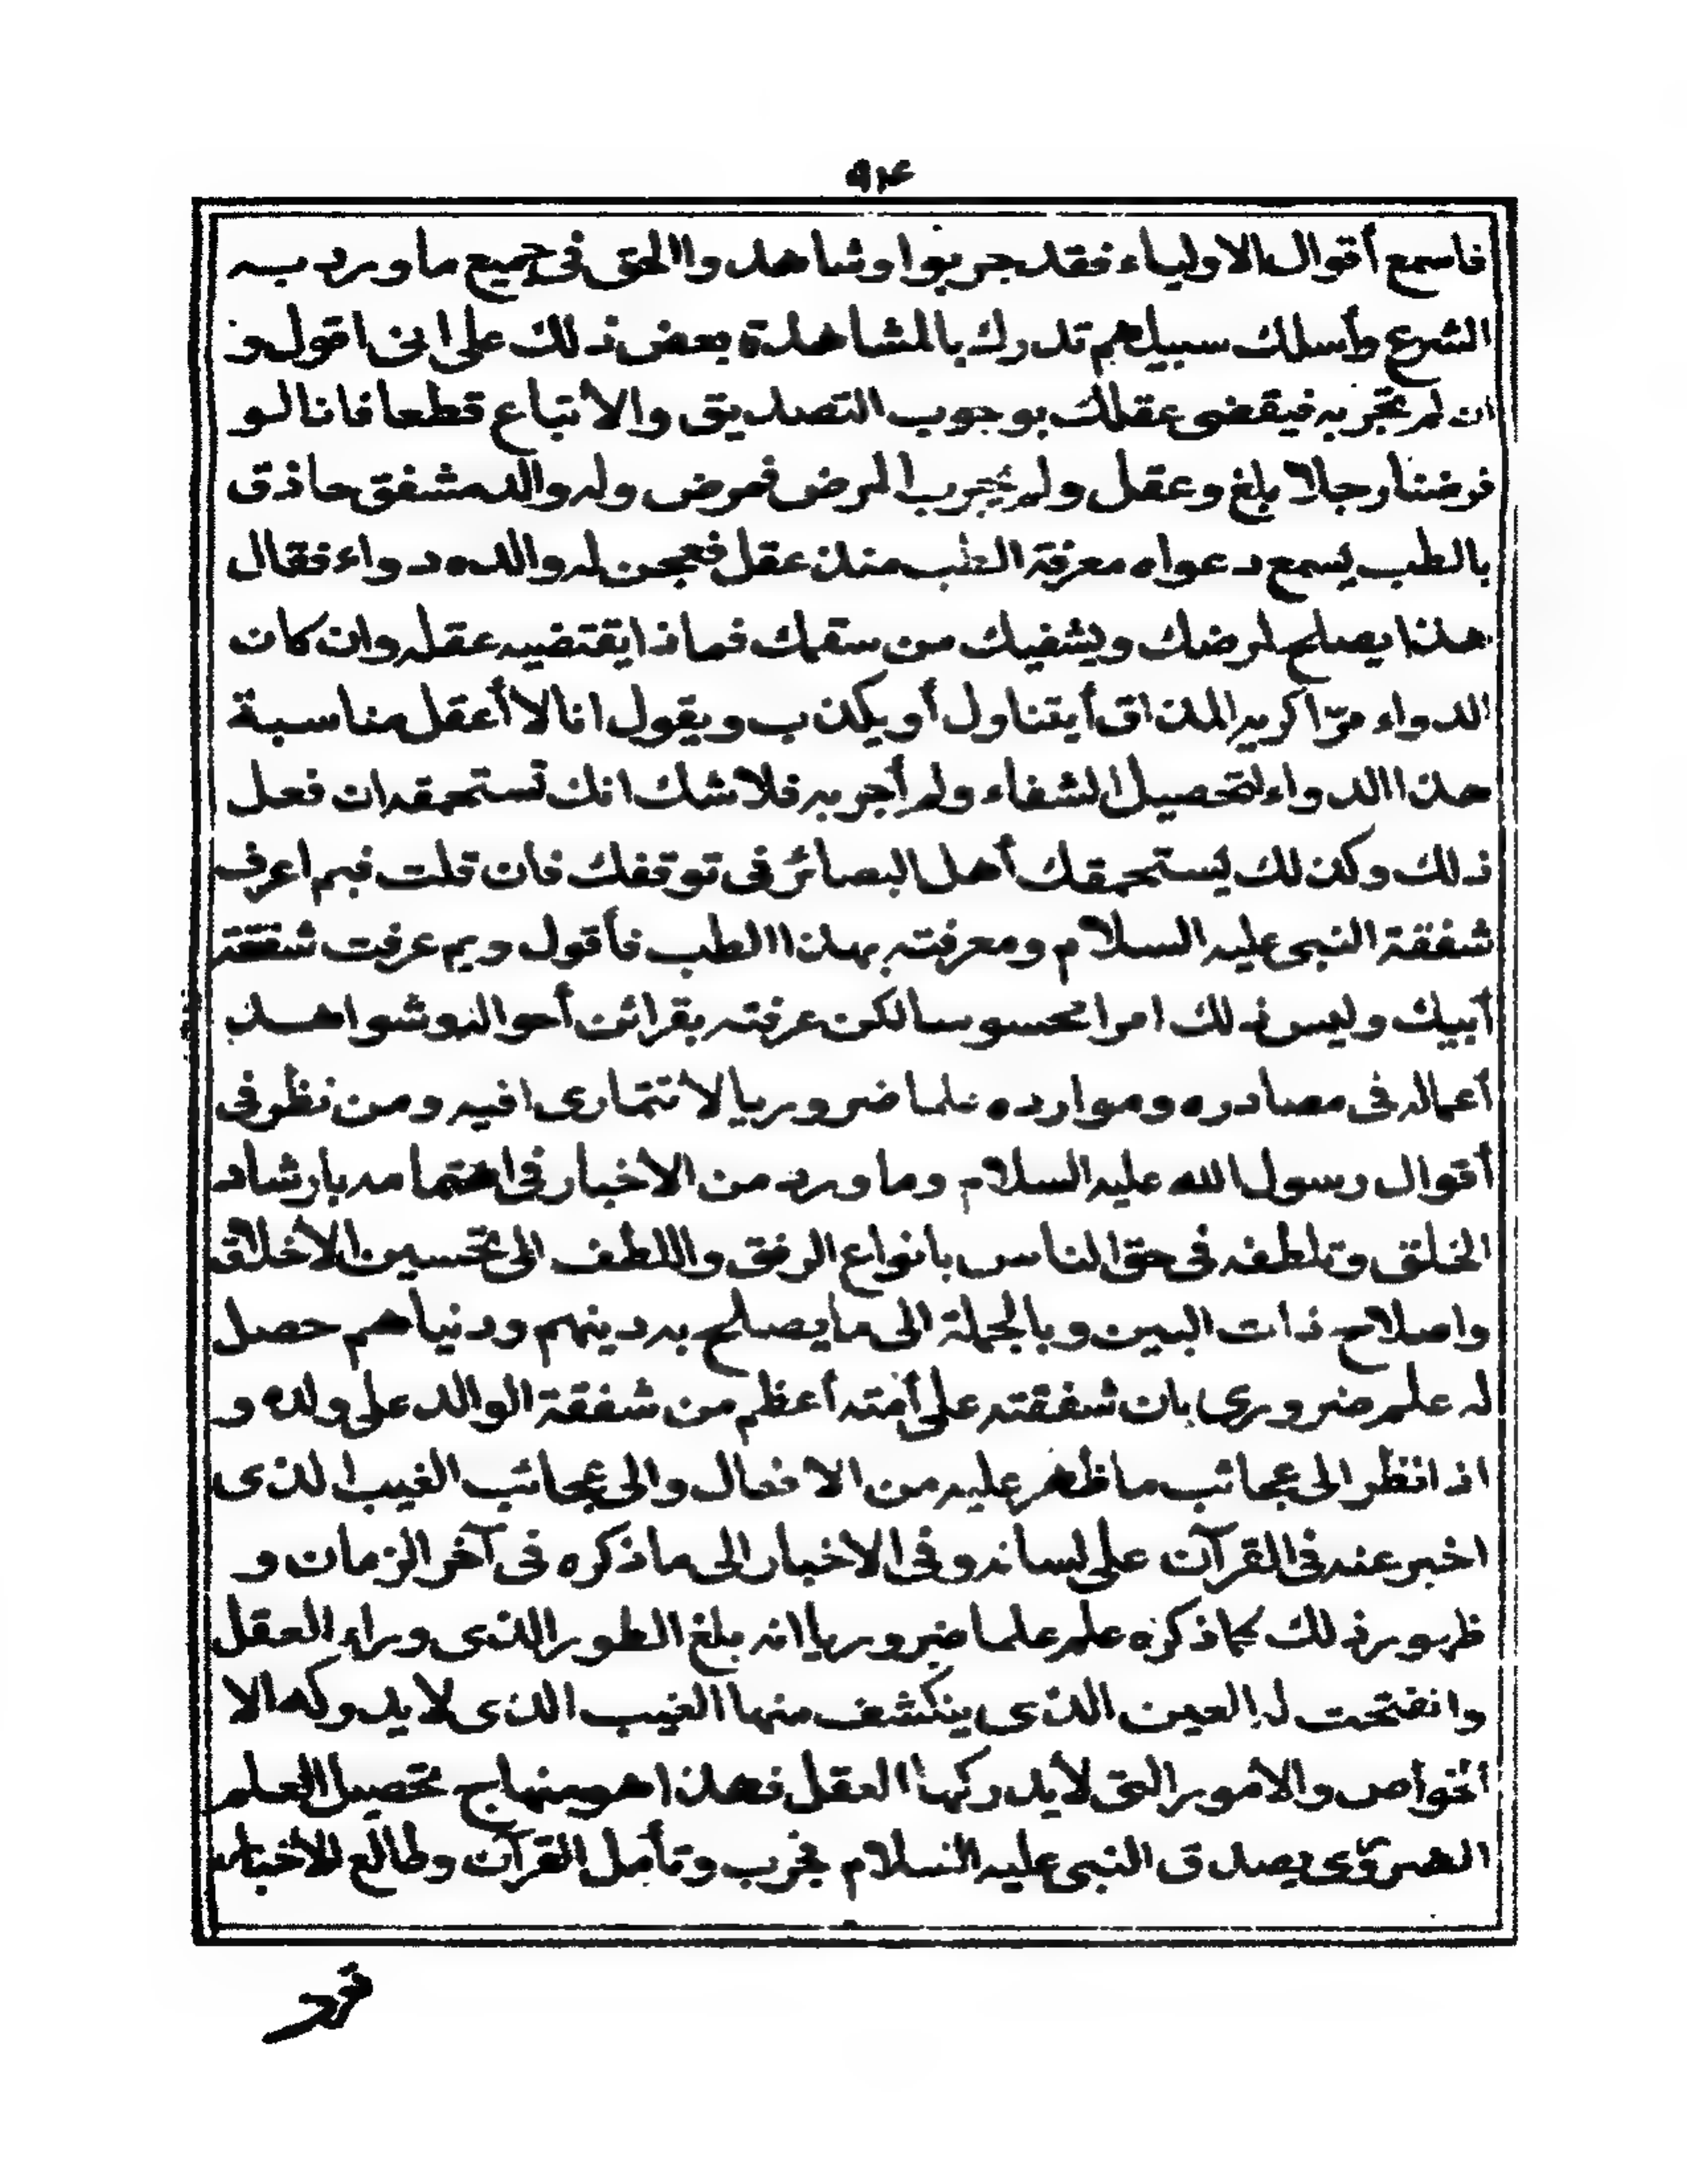 ٩٤
فاسمع أقوال الاولياء فقد جربوا وشاهدوا الحق فى جميع ما ورد به
الشرع وأسلك سبيلهم تدرك بالمشاهدة بعض ذلك على انى اقول و
ان لم تجربه فيقضى عقلك بوجوب التصديق والأتباع قطعا فانا لو
فرضنا رجلا بلغ وعقل ولم يجرب المرض فمرض وله والد مشفق حاذق
بالطب يسمع دعواه معرفة الطب منذ عقل فعجن له والده دواء فقال
هذا يصلح لمرضك ويشفيك من سقمك فماذا يقتضيه عقله وان كان
الدواء مرّا كريه المذاق أيتناول أو يكذب ويقول انا لا أعقل مناسبة
هذا الدواء لتحصيل الشفاء ولم أجربه فلا شك انك تستحمقه ان فعل
ذلك وكذلك يستحمقك أهل البصائر فى توقفك فان قلت فبم اعرف
شفقة النبى عليه السلام ومعرفته بهذا الطب فأقول وبم عرفت شفقة
أبيك وليس ذلك امرا محسوسا لكن عرفته بقرائن أحواله وشواهد
أعماله فى مصادره وموارده علما ضروريا لا تتمارى فيه ومن نظر فى
أقوال رسول الله عليه السلام وما ورد من الأخبار فى اهتمامه بارشاد
الخلق وتلطفه فى حق الناس بانواع الرفق واللطف الى تحسين الأخلاق
واصلاح ذات البين وبالجملة الى ما يصلح به دينهم ودنياهم حصل
له علم ضرورى بان شفقته على أمته أعظم من شفقة الوالد على ولده و
اذا نظر الى عجائب ما ظهر عليه من الافعال والى عجائب الغيب الذى
اخبر عنه فى القرآن على لسانه وفى الاخبار الى ما ذكره فى آخر الزمان و
ظهور ذلك كما ذكره علم علما ضروريا انه بلغ الطور الذى وراء العقل
وانفتحت له العين الذى ينكشف منها الغيب الذى لا يدركه الا
الخواص والأمور التى لا يدركها العقل فهذا هو منهاج تحصيل العلم
الضرورى بصدق النبى عليه السلام فجرب وتأمل القرآن وطالع الأخبار